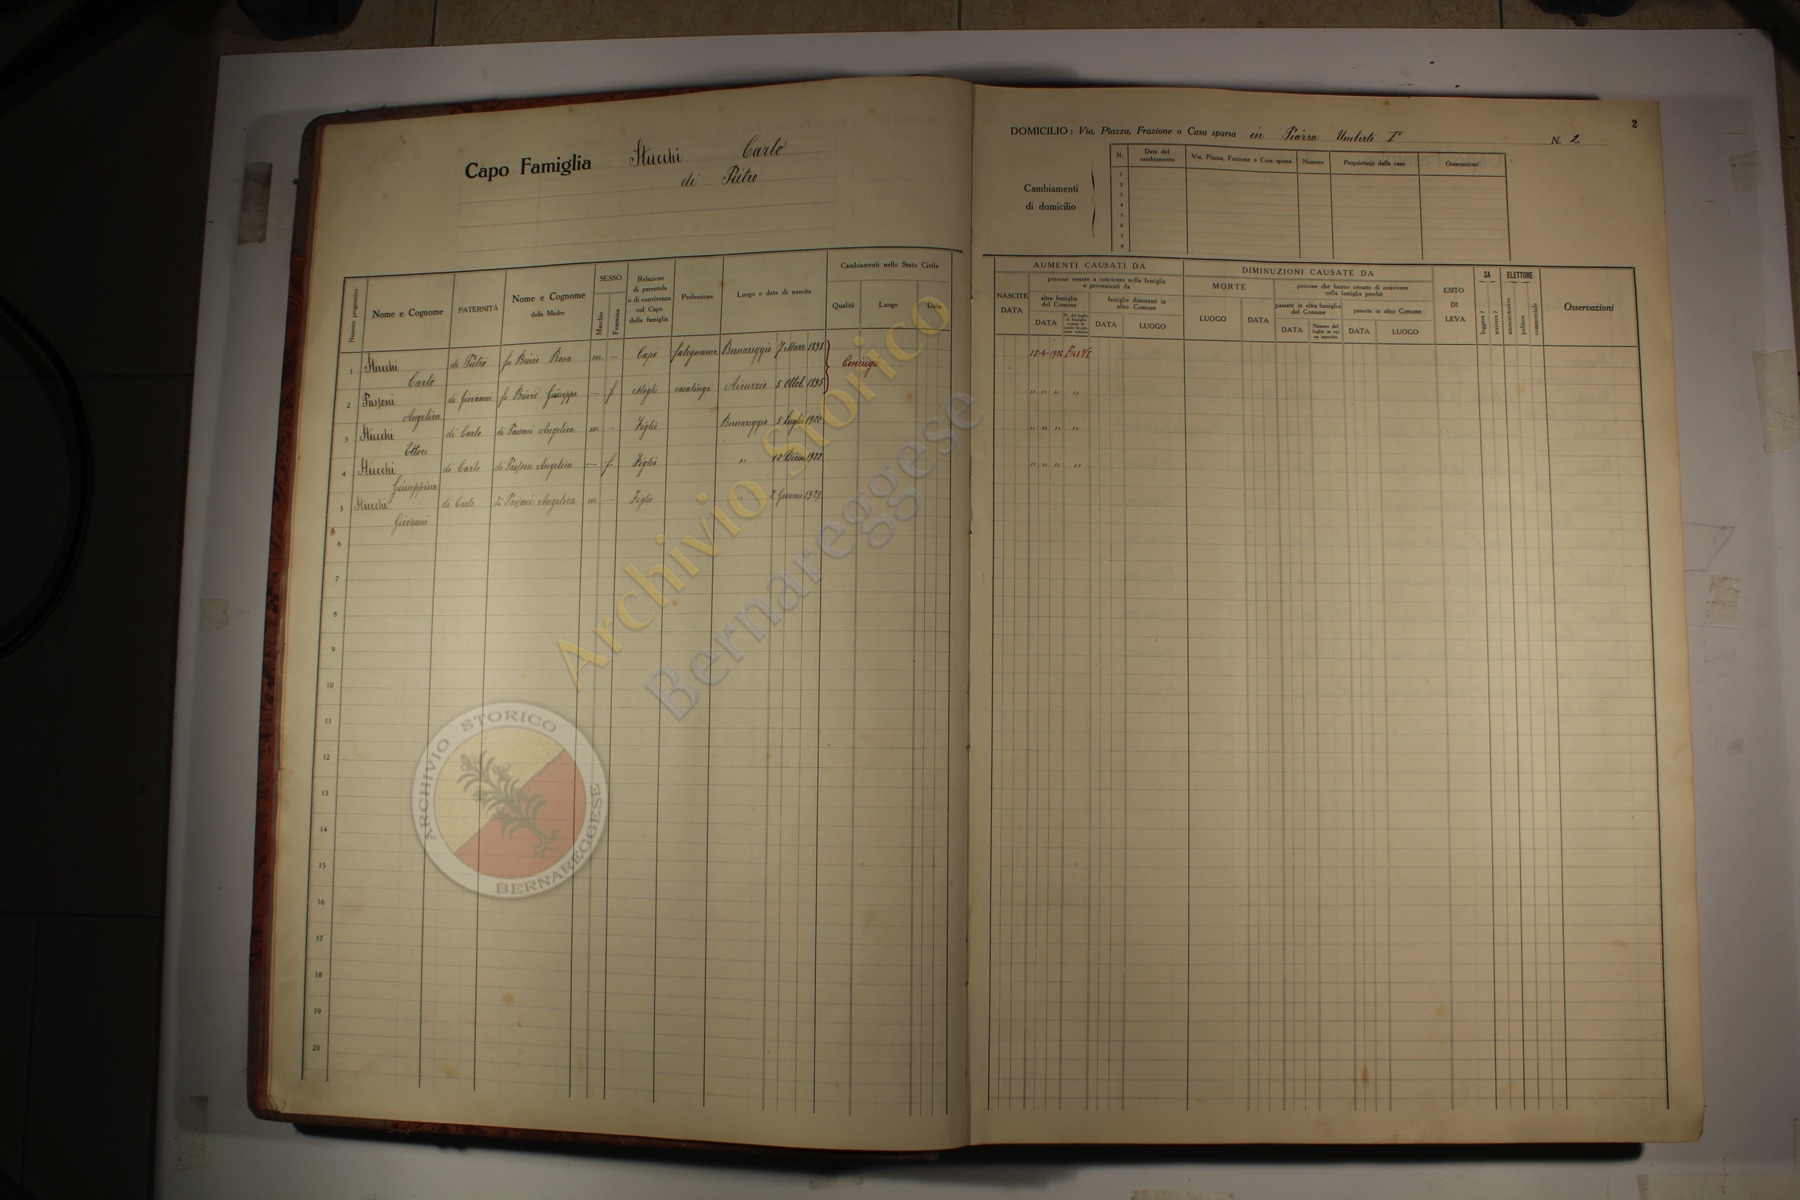 Capo Famiglia Stucchi Carlo
di Pietro
2
DOMICILIO: Via, Piazza, Frazione o Casa sparsa in Piazza Umberto I° N. 2
Cambiamenti di domicilio
N. Data del cambiamento Via, Piazza, Frazione o Casa sparsa Numero Proprietario della casa Osservazioni
1
2
3
4
5
6
7
8
Numero progressivo Nome e Cognome PATERNITÀ Nome e Cognome della Madre SESSO Maschio Femmina Relazione di parentela o di convivenza col Capo della famiglia Professione Luogo e data di nascita Cambiamenti nello Stato Civile Qualità Luogo Data
1 Stucchi Carlo di Pietro fu Brivio Rosa m. — Capo falegname Bernareggio 7 Marzo 1895 Coniugi
2 Passoni Angelica di Giovanni fu Brivio Giuseppa — f. Moglie casalinga Aicurzio 5 Ottob. 1895
3 Stucchi Ettore di Carlo di Passoni Angelica m. — Figlio Bernareggio 5 Luglio
4 Stucchi Giuseppina di Carlo di Passoni Angelica — f. Figlia „
5 Stucchi Giovanni di Carlo di Passoni Angelica m. — Figlio „ 2 Gennaio 1929
6
7
8
9
10
11
12
13
14
15
16
17
18
19
20
AUMENTI CAUSATI DA
NASCITE DATA
persone venute a convivere nella famiglia e provenienti da
altra famiglia del Comune DATA
famiglie dimoranti in altro Comune DATA LUOGO
DIMINUZIONI CAUSATE DA
MORTE LUOGO DATA
persone che hanno cessato di convivere colla famiglia perchè
passate in altra famiglia del Comune DATA
passate in altro Comune DATA LUOGO
ESITO DI LEVA
SA leggere? scrivere?
ELETTORE amministrativo politico commerciale
Osservazioni
„ „ „ „
„ „ „ „
„ „ „ „
Archivio Storico
Bernareggese
ARCHIVIO STORICO BERNAREGGESE